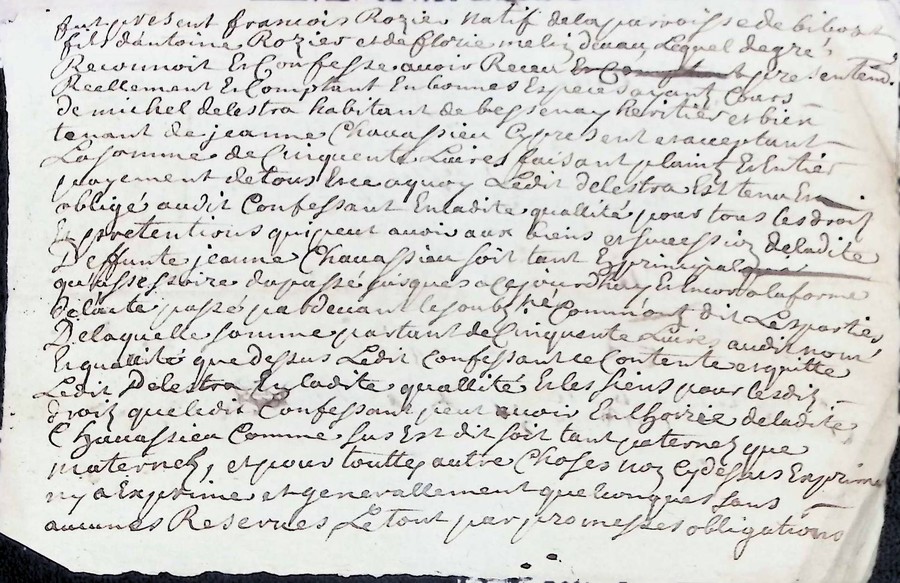 fut present francois Rozier natif dela parroisse de bibost
fils dantoine Rozier et de florie melin Lequel de gré
Reconnoit Et Confesse avoir Receu presentemt
Reallement Et Comptant En bonnes Especes ayant Cours
de michel delestra habitant de bessenay heritier et bien
tenant de jeanne Chauassieu Cy present et acceptant
La somme de Cinquante Liures faisant plain Et Entier
payement de tous En ce aquoy Ledit delestra Est tenu Et
obligé audit Confessant En ladite quallité pour tous les droit
Et pretentions qui peut avoir aux biens et succession deladite
Deffunte jeanne Chauassieu soit tant En principal que
qu'assessoire du passé jusques a ce jourdhuy Et incor a la forme
de lacte passé pardeuant le soubne Comm're dit Les parties
De laquelle somme partant de Cinquante Liures audit nom
Et quallité que dessus Ledit Confessant ce Contente et quitte
Ledit Delestra En ladite quallité Et les siens pour lesdit
droit que ledit Confessant peut avoir En lhoirie deladite
Chauassieu Comme sus Est dit soit tant paternez que
maternez, et pour toutte autre Choses noz Cy dessus Exprime
ny a Exprime et generallement quelconques sans
aucunes Reserues Le tout par promesses obligations